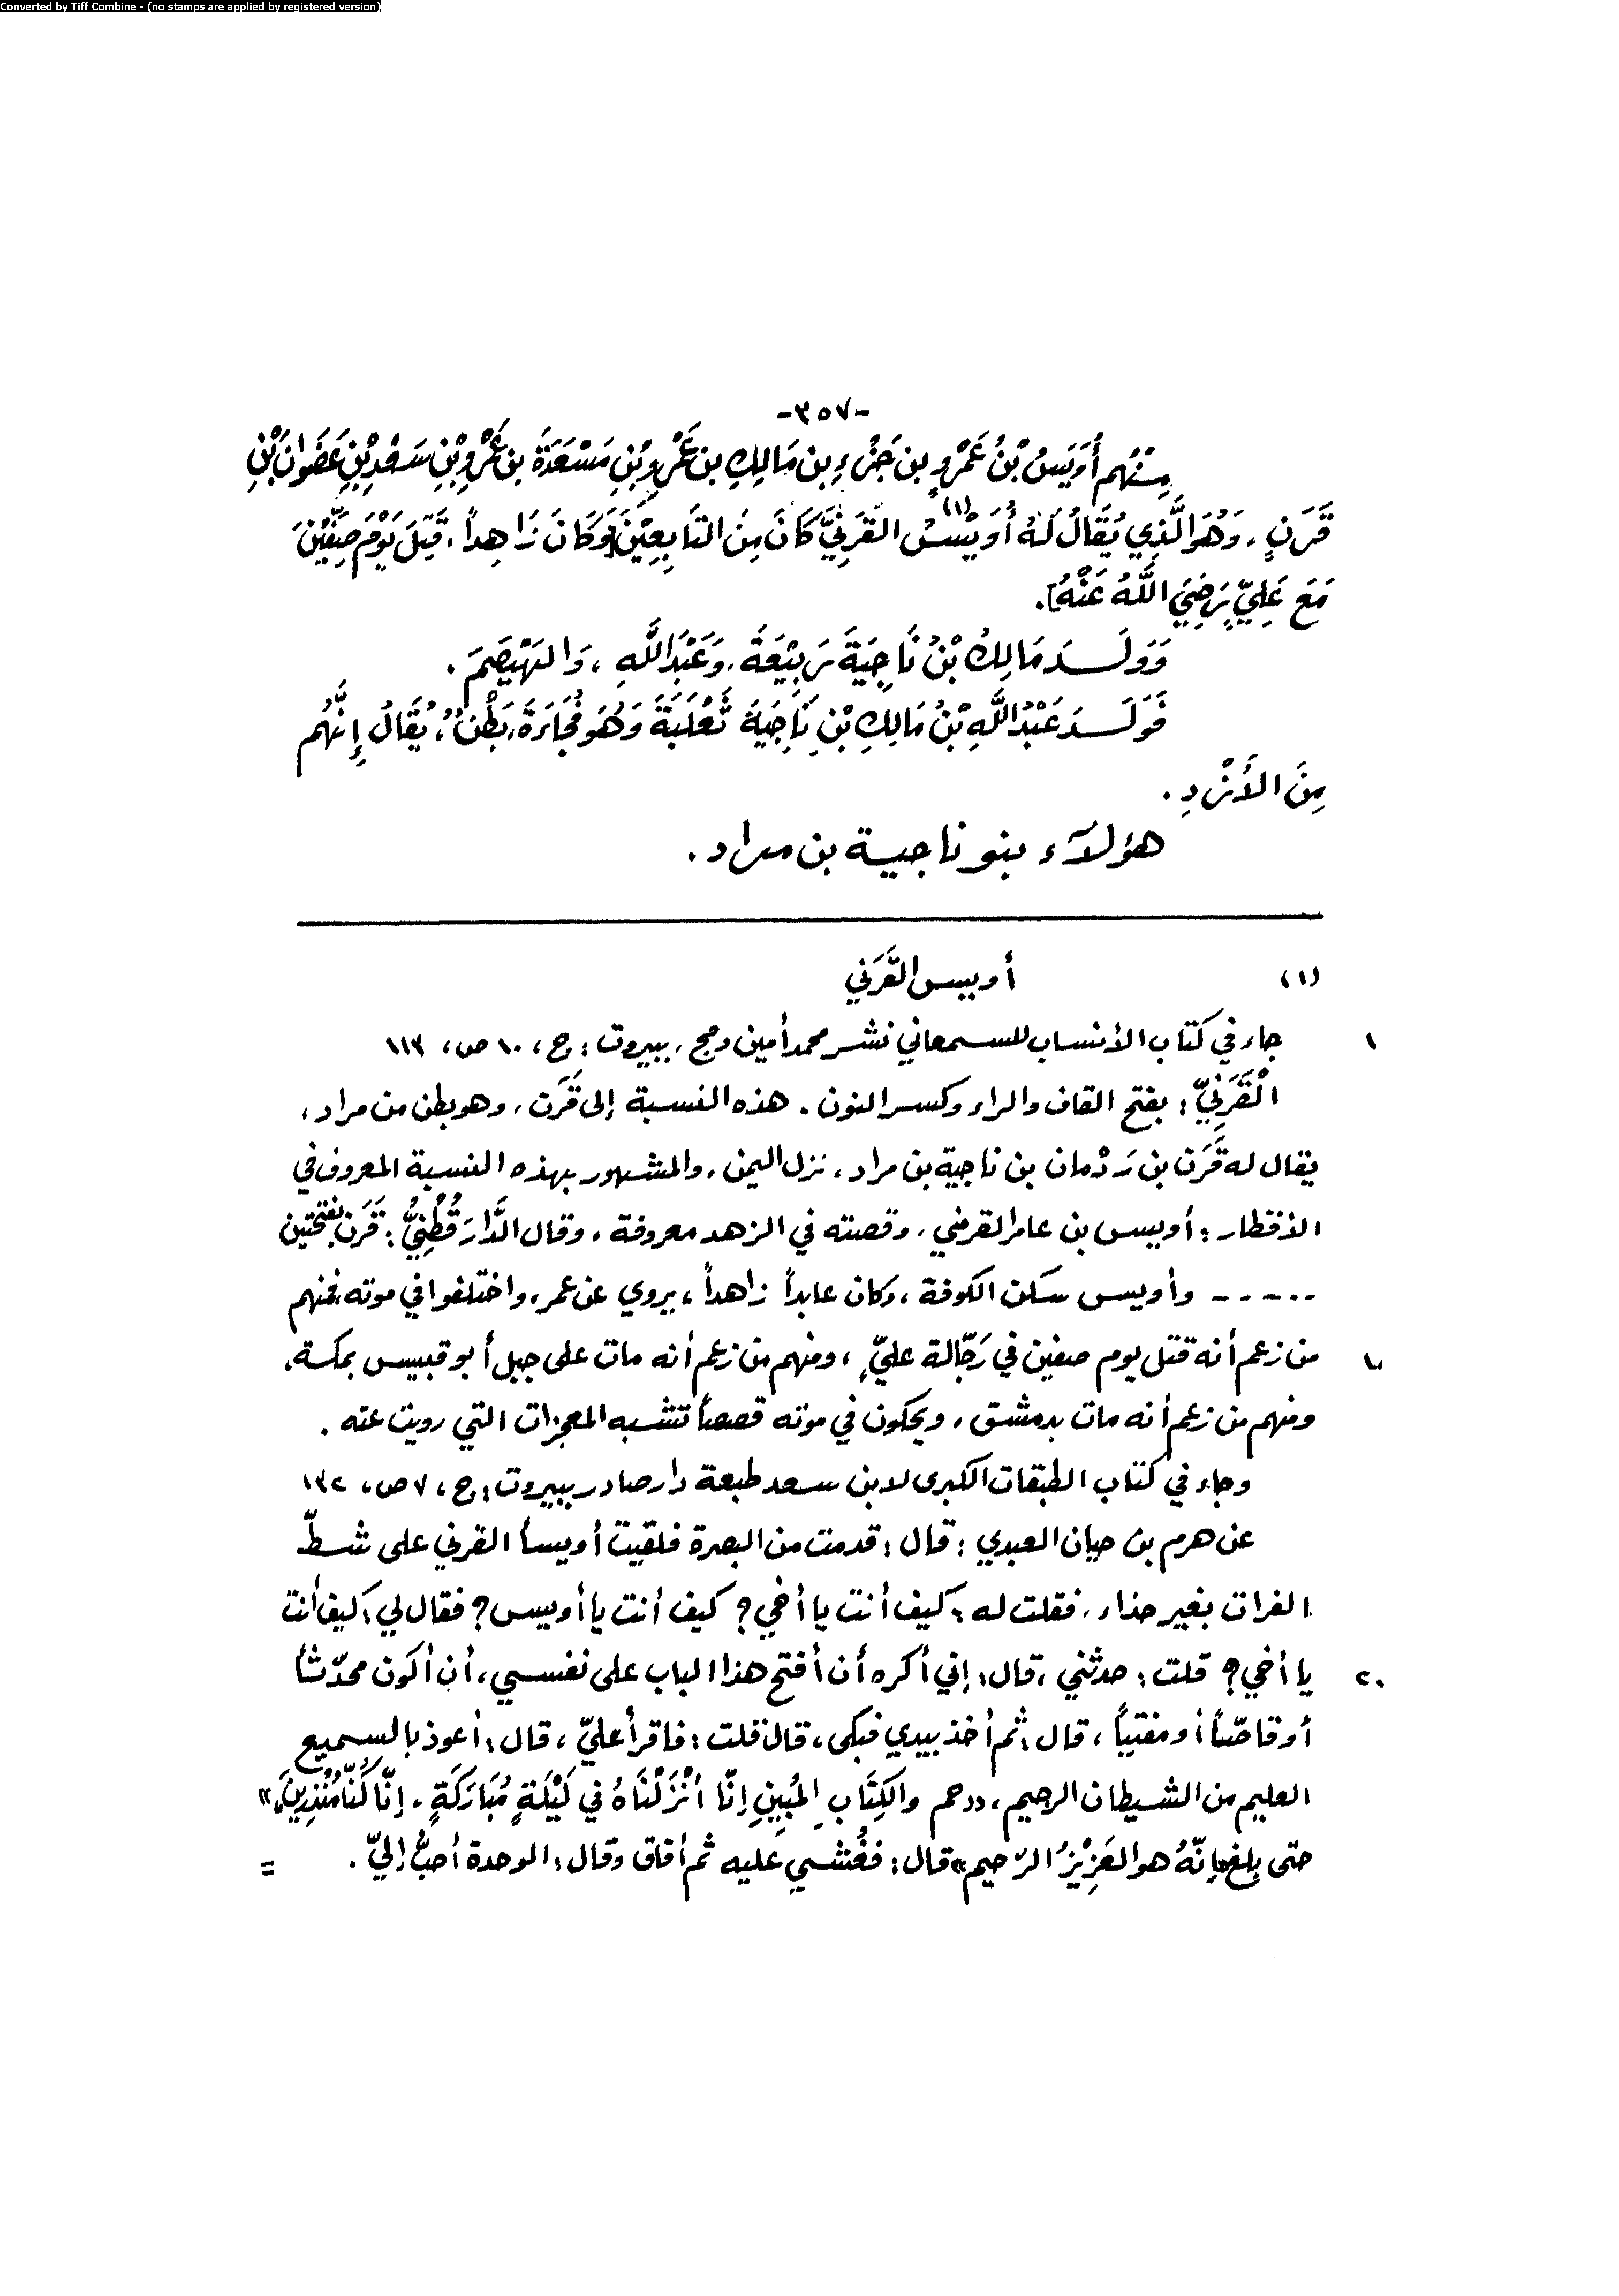 Converted by Tiff Combine - (no stamps are applied by registered version)
-٣٥٧-
مِنْهُم أُوَيْسُ بْنُ عَمْرِو بن جَزْءِ بن مَالِكِ بن عَمْرِو بْنِ مَسْعَدَةَ بن عَمْرِو بْنِ سَعْدِ بْنِ عَصْوَانَ بْنِ
قَرَنٍ، وَهُوَ الَّذِي يُقَالُ لَهُ أُوَيْسُ (١) القَرَنِيَّ كَانَ مِنَ التَّابِعِيْنَ [وَكَانَ زَاهِداً، قُتِلَ يَوْمَ صِفِّيْنَ
مَعَ عَلِيٍّ رَضِيَ اللَّهُ عَنْهُ].
وَوَلَدَ مَالِكُ بْنُ نَاجِيَةَ رَبِيْعَةَ، وَعَبْدَاللَّهِ، وَالهَيْصَمَ.
فَوَلَدَ عَبْدُ اللَّهِ بْنُ مَالِكِ بْنِ نَاجِيَةَ ثَعْلَبَةَ وَهُوَ فُجَاءَةَ، بَطْنٌ، يُقَالُ إِنَّهُم
مِنَ الأَزْدِ.
هؤلآء بنو ناجية بن مراد.
(١) أويس القَرَني
١ جاء في كتاب الأنساب للسمعاني نشر محمد أمين دمج، ببيروت: ج، ١٠ ص، ١١٣
الْقَرَنِيّ: بفتح القاف والراء وكسر النون. هذه النسبة إلى قَرَن، وهو بطن من مراد،
يقال له قَرَن بن رَدْمان بن ناجية بن مراد، نزل اليمن، والمشهور بهذه النسبة المعروف في
الأقطار: أويس بن عامر القرني، وقصته في الزهد معروفة، وقال الدَّارَقُطْنِيُّ: قَرَن بفتحتين
----- وأويس سكن الكوفة، وكان عابداً زاهداً، يروي عن عمر، واختلفوا في موته، فمنهم
١٠ من زعم أنه قتل يوم صفين في رَجّالة عليٍّ، ومنهم من زعم أنه مات على جبل أبو قبيس بمكة،
ومنهم من زعم أنه مات بدمشق، ويحكون في موته قصصاً تشبه المعجزات التي رويت عنه.
وجاء في كتاب الطبقات الكبرى لابن سعد طبعة دار صادر ببيروت: ج، ٧ ص، ١٣٢
عن هرم بن حيان العبدي: قال: قدمت من البصرة فلقيت أويسأ القرني على شطّ
الفرات بغير حذاء، فقلت له: كيف أنت يا أخي؟ كيف أنت يا أويس؟ فقال لي: كيف أنت
٢٠ يا أخي؟ قلت: حدثني، قال: إني أكره أن أفتح هذا الباب على نفسي، أن أكون محدّثاً
أو قاصّاً أو مفتياً، قال: ثم أخذ بيدي فبكى، قال: قلت: فاقرأ عليّ، قال: أعوذ بالسميع
العليم من الشيطان الرجيم، ((حم والكِتَابِ المُبِينِ إِنَّا أَنْزَلْنَاهُ في لَيْلَةٍ مُبَارَكَةٍ، إنَّا كُنَّا مُنْذِرِينَ،))
حتى بلغ ((إنَّهُ هو العَزِيْزُ الرّحيم)) قال: فغُشي عليه ثم أفاق وقال: الوحدة أحبُّ إليّ. =